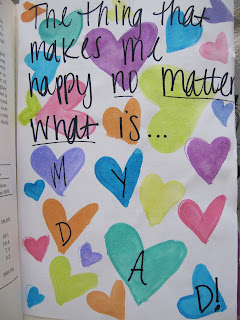 The thing that
makes me
happy no matter
what is...
M Y
D
A
D!